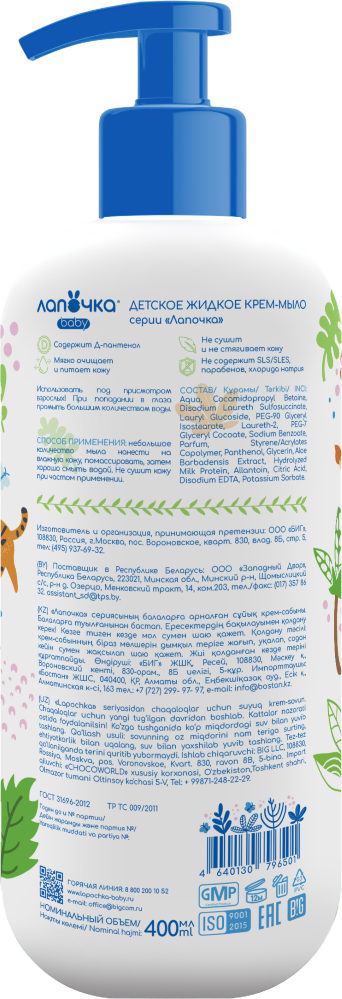 лапочка®
baby
ДЕТСКОЕ ЖИДКОЕ КРЕМ-МЫЛО
серии «Лапочка»
Содержит Д-пантенол
Мягко очищает
и питает кожу
Не сушит
и не стягивает кожу
Не содержит SLS/SLES,
парабенов, хлорида натрия
Использовать под присмотром
взрослых! При попадании в глаза
промыть большим количеством воды.
СПОСОБ ПРИМЕНЕНИЯ: небольшое
количество мыла нанести на
влажную кожу, помассировать, затем
хорошо смыть водой. Не сушит кожу
при частом применении.
СОСТАВ/ Құрамы/ Tarkibi/ INCI:
Aqua, Cocamidopropyl Betaine,
Disodium Laureth Sulfosuccinate,
Lauryl Glucoside, PEG-90 Glyceryl
Isostearate, Laureth-2, PEG-7
Glyceryl Cocoate, Sodium Benzoate,
Parfum, Styrene/Acrylates
Copolymer, Panthenol, Glycerin, Aloe
Barbadensis Extract, Hydrolyzed
Milk Protein, Allantoin, Citric Acid,
Disodium EDTA, Potassium Sorbate.
Изготовитель и организация, принимающая претензии: ООО «БИГ»,
108830, Россия, г.Москва, пос. Вороновское, квартл. 830, влд. 8Б, стр. 5,
тел. (495) 937-69-32.
(BY) Поставщик в Республике Беларусь: ООО «Западный Двор»,
Республика Беларусь, 223021, Минская обл., Минский р-н, Щомыслицкий
с/с, р-н д. Озерцо, Меньковский тракт, 14, ком.203, тел./факс: (017) 357 86
32, assistant_sd@tps.by.
(KZ) «Лапочка» сериясының балаларға арналған сұйық крем-сабыны
Балаларға туылғанынан бастап. Ересектердің бақылауымен қолдану
керек! Көзге тиген кезде мол сумен шаю қажет. Қолдану тәсілі:
крем-сабынның біраз мөлшерін дымқыл теріге жағып, уқалап, содан
кейін сумен жақсылап шаю қажет. Жиі қолданған кезде теріні
құрғатпайды. Өндіруші: «БИГ» ЖШҚ, Ресей, 108830, Мәскеу қ.,
Вороновское кенті, 830-орам, 8Б иелігі, 5-құр. Импорттаушы:
«Бостан» ЖШС, 040400, ҚР, Алматы обл., Еңбекшіқазақ ауд., Есік қ.,
Алматинская к-сі, 163 тел.: +7 (727) 299- 97- 97, e-mail: info@bostan.kz.
(UZ) «Lapochka» seriyasidan chaqaloqlar uchun suyuq krem-sovun.
Chaqaloqlar uchun yangi tug'ilgan davridan boshlab. Kattalar nazorati
ostida foydalanilsin! Ko'zga tushganida ko'p miqdordagi suv bilan yuvib
tashlang. Qo'llash usuli: sovunning oz miqdorini nam teriga surting,
ehtiyotkorlik bilan uqalang, suv bilan yaxshilab yuvib tashlang. Tez-tez
qo'llanilganda terini quritib yubormaydi. Ishlab chiqaruvchi: BIG LLC, 108830,
Rossiya, Moskva, pos. Voronovskoe, Kvart. 830, ravon 8B, 5-bino. Import
qiluvchi: «CHOCOWORLD» xususiy korxonasi, O'zbekiston,Toshkent shahri,
Olmazor tumani Oltinsoy ko'chasi 5-A, Tel: + 99871-248-22-29.
ГОСТ 31696-2012
ТР ТС 009/2011
Годен до и № партии/
Дейін жарамды және партия №/
Yaroqlilik muddati va partiya №:
4 640130 796501
ГОРЯЧАЯ ЛИНИЯ: 8 800 200 10 52
lapochka-baby.ru
e-mail: office@bigcom.ru
НОМИНАЛЬНЫЙ ОБЪЕМ/
Нақты көлемі/ Nominal hajmi:
400 МЛ
ml
GMP
12М
03
PVC
ISO 9001
2015
EAC
B!G